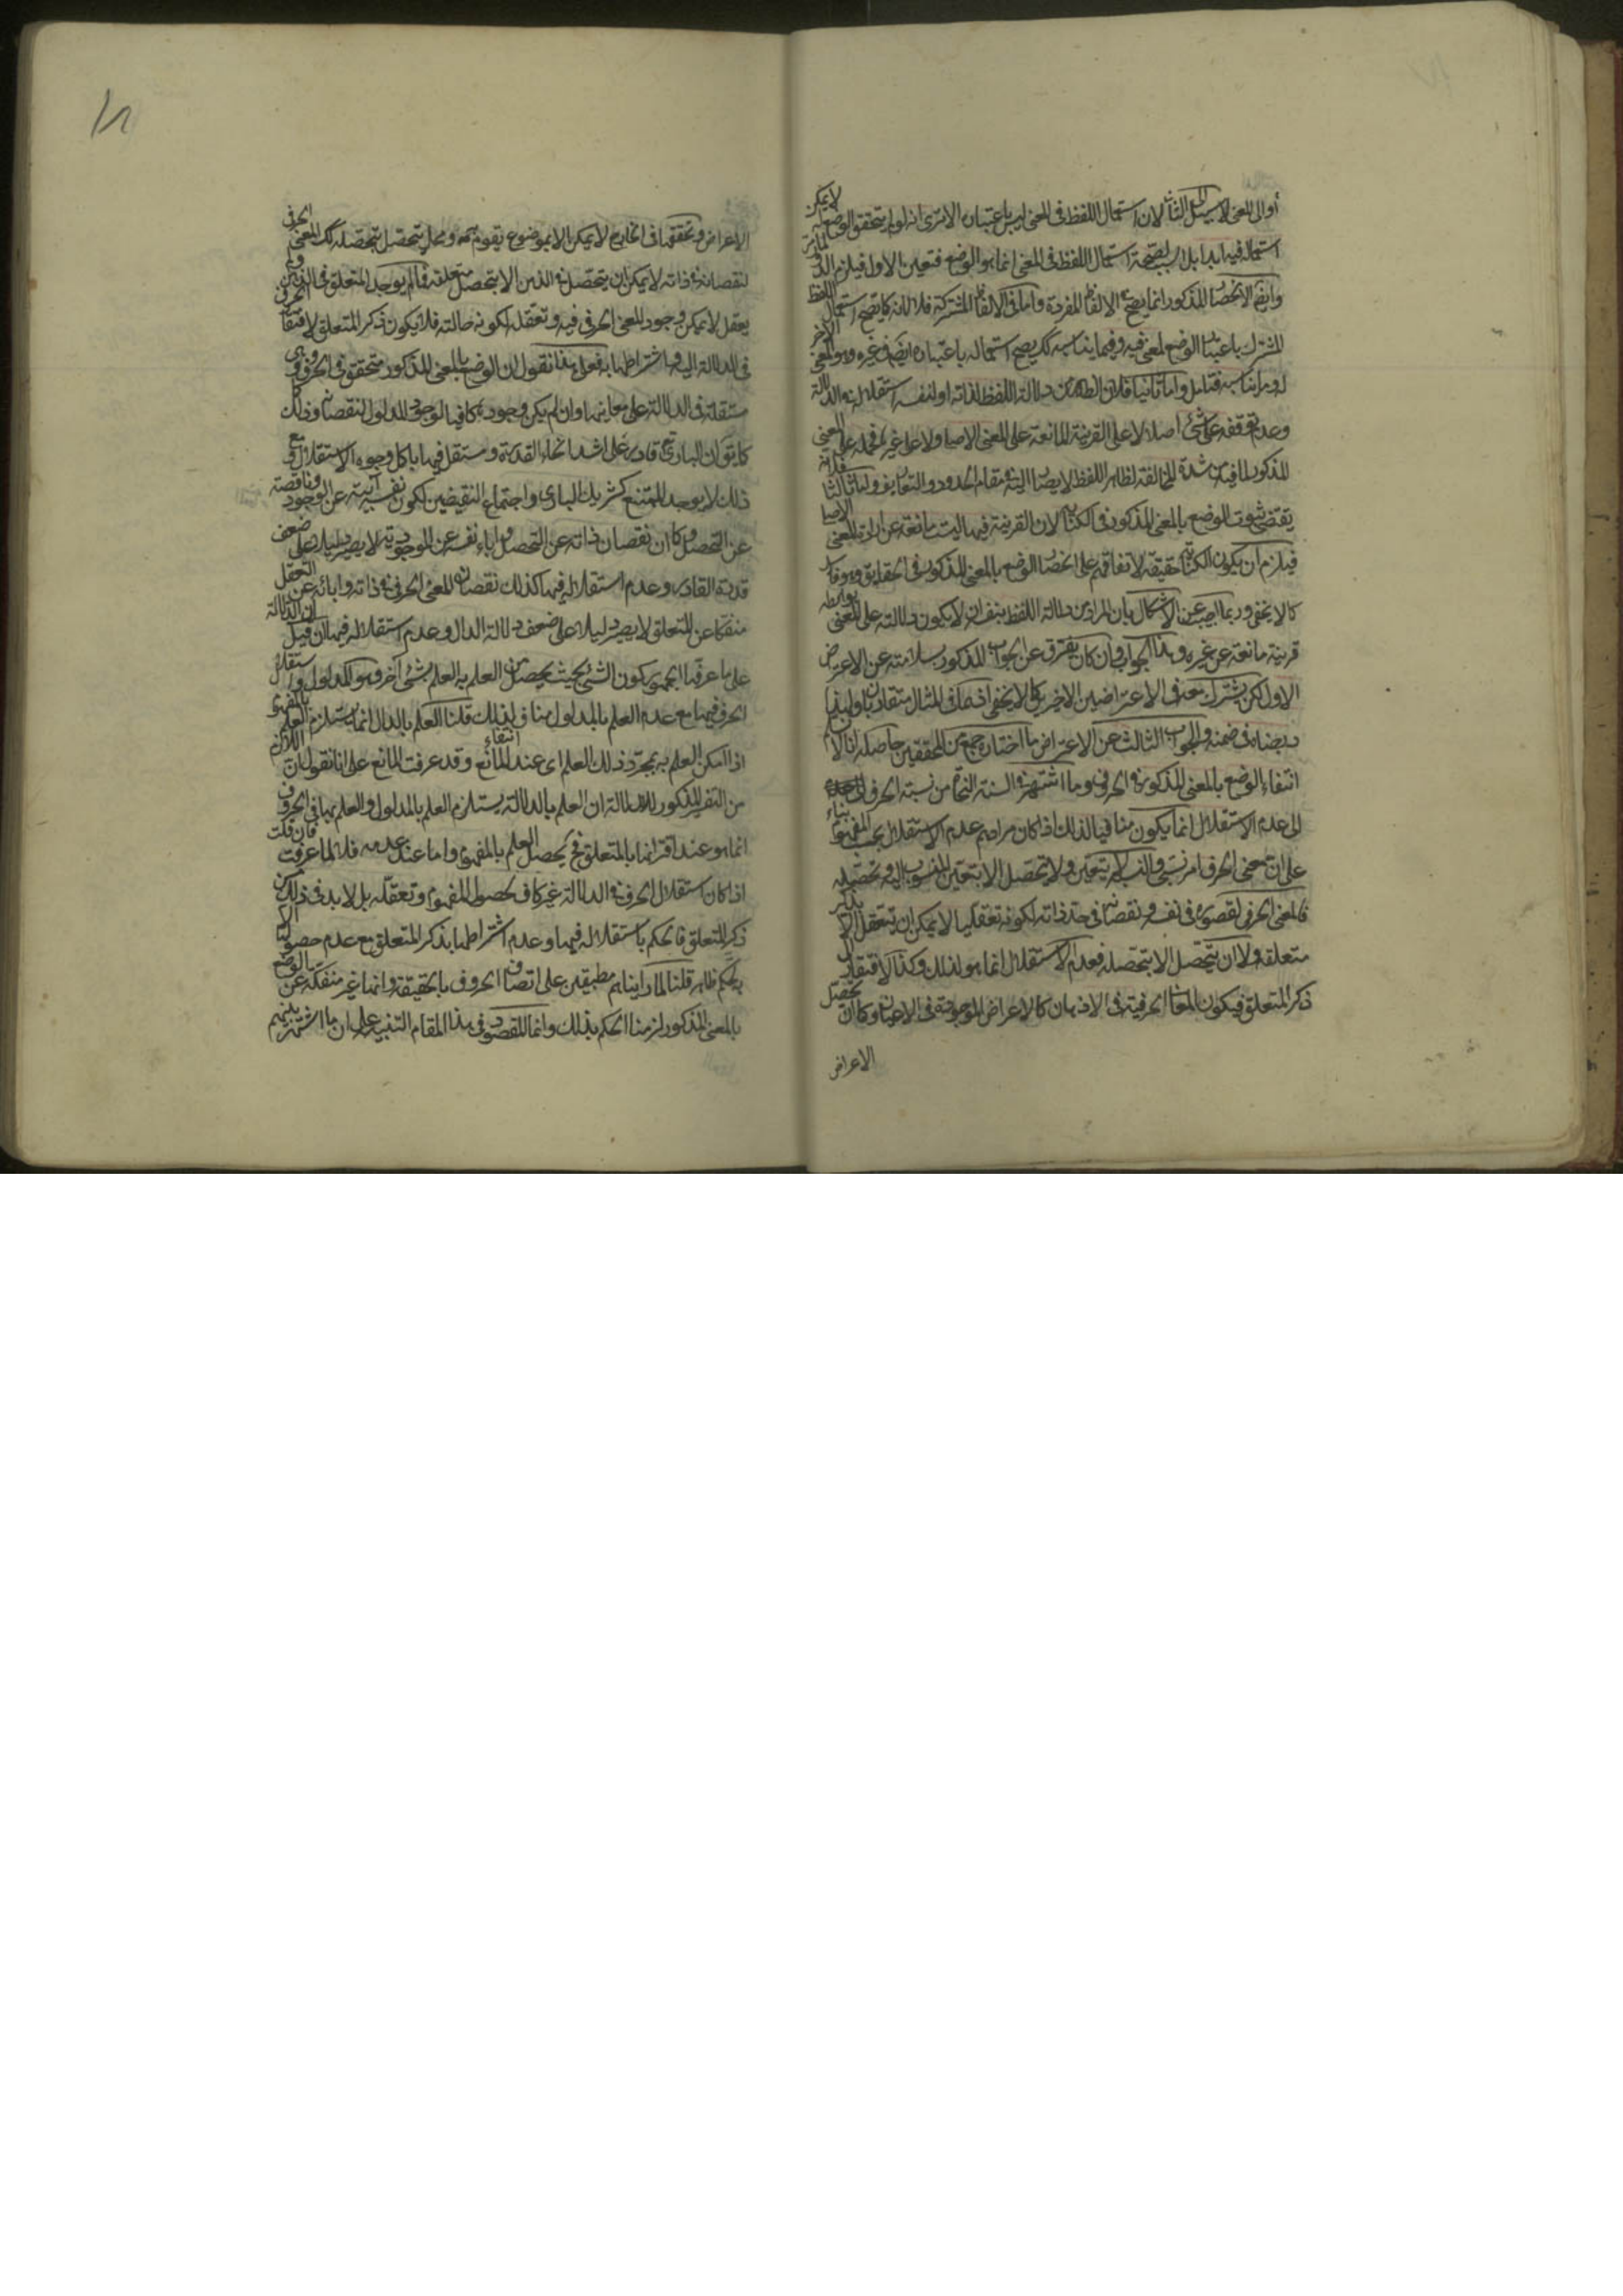 أو الى المعنى لا سبيل الى الثاني لان استعمال اللفظ في المعنى ليس باعتبار الا ترى انه لو لم يتحقق الوضع لا يمكن
استعماله فيه ابدا بل السبب لصحة استعمال اللفظ في المعنى انما هو الوضع فتعين الاول فيلزم الدور
وايضا الاختصاص المذكور انما يصح في الالفاظ المفردة واما في الالفاظ المشتركة فلا لانه كما يصح استعمال اللفظ
المشترك باعتبار الوضع لمعنى فيه وفيما يناسبه كك يصح استعماله باعتباره ايضا في غيره وهو المعنى الاخر
او ما يناسبه فتامل واما ثانيا فلان الظاهر من دلالة اللفظ لذاته او لنفسه استقلاله في الدلالة
وعدم توقفه على شئ اصلا لا على القرينة المانعة على المعنى الاصلي ولا على غيره فحمله على المعنى
المذكور لما فيه من شدة المخالفة لظاهر اللفظ لا يصار اليه في مقام الحدود والتعاريف واما ثالثا فلانه
يقتضي ثبوت الوضع بالمعنى المذكور في الكناية لان القرينة فيها ليست مانعة عن ارادة المعنى الاصلي
فيلزم ان يكون الكناية حقيقة لاتفاقهم على انحصار الوضع بالمعنى المذكور في الحقايق وهو فاسد
كما لا يخفى وربما اجيب عن الاشكال بان المراد من دلالة اللفظ بنفسه ان لا يكون دلالته على المعنى بواسطة
قرينة مانعة عن غيره وهذا الجواب وان كان يفترق عن الجواب المذكور بسلامته عن الاعتراض
الاول لكن يشترك معه في الاعتراضين الاخرين كما لا يخفى اذ هما في المثال متقاربان ولهذا
ادرجناه في ضمنه والجواب الثالث عن الاعتراض ما اختاره جمع من المحققين حاصله انا لا نم
انتفاء الوضع بالمعنى المذكور في الحرف وما اشتهر في السنة النحاة من نسبة الحرف
الى عدم الاستقلال انما يكون منافيا لذلك اذا كان مرادهم عدم الاستقلال بحسب المفهوم بناء
على ان معنى الحرف امر نسبي والنسبة لا يتعين ولا يتحصل الا بتعين المنسوب اليه وتحصله
فالمعنى الحرفي لقصوره في نفسه ونقصانه في حد ذاته لكونه تعقليا لا يمكن ان يتعقل الا بذكر
متعلقه ولا ان يتحصل الا بتحصله فعدم الاستقلال انما هو لذلك وكذا الافتقار الى
ذكر المتعلق فيكون المعاني الحرفية في الاذهان كالاعراض الموجودة في الاعيان وكما ان تحصل
الاعراض
الاعراض وتحققها في الخارج لا يمكن الا بموضوع يقوم به ومحل يتحصل بتحصله كك المعنى الحرفي
لنقصانه في ذاته لا يمكن ان يتحصل في الذهن الا بتحصل متعلقه فما لم يوجد المتعلق في الذهن ولم
يعقل لا يمكن وجود المعنى الحرفي فيه وتعقله لكونه حالته فلا يكون ذكر المتعلق لافتقار الحرف
في الدلالة اليه واشتراطها به فعلى هذا نقول ان الوضع بالمعنى المذكور متحقق في الحروف وهي
مستقلة في الدلالة على معانيها وان لم يكن وجوده كافيا لوجود المدلول لنقصانه وذلك
كما تقول ان البارئ قادر على اشد انحاء القدرة ومستقل فيها باكل وجوه الاستقلال ومع
ذلك لا يوجد الممتنع كشريك الباري واجتماع النقيضين لكون نفسه آبية عن الوجود وناقصة
عن التحصل وكما ان نقصان ذاته عن التحصل واباء نفسه عن الموجودية لا يصير دليلا على ضعف
قدرة القادر وعدم استقلاله فيها كذلك نقصان المعنى الحرفي في ذاته وابائه عن التعقل
منفكا عن المتعلق لا يصير دليلا على ضعف دلالة الدال وعدم استقلاله فيها ان قيل ان الدلالة
على ما عرفها الجمهور كون الشئ بحيث يحصل من العلم به العلم بشئ آخر وهو المدلول واستقلال
الحرف فيها مع عدم العلم بالمدلول مناف لذلك قلنا العلم بالدال انما يستلزم العلم بالمفهوم
اذا امكن العلم به بمجرد ذلك العلم اى عند انتفاء المانع وقد عرفت المانع على انا نقول ان اللازم
من التفسير المذكور للدلالة ان العلم بالدلالة يستلزم العلم بالمدلول والعلم بها في الحروف
انما هو عند اقترانها بالمتعلق فح يحصل العلم بالمفهوم واما عند عدمه فلا لما عرفت فان قلت
اذا كان استقلال الحرف في الدلالة غير كاف لحصول المفهوم وتعقله بل لا بد في ذلك من
ذكر المتعلق فالحكم باستقلاله فيها وعدم اشتراطها بذكر المتعلق مع عدم حصولها الا
به تحكم ظاهر قلنا لما رايناهم مطبقين على اتصاف الحروف بالحقيقة وانها غير منفكة عن الوضع
بالمعنى المذكور لزمنا الحكم بذلك وانما المقصود في هذا المقام التنبيه على ان ما اشتهر بينهم